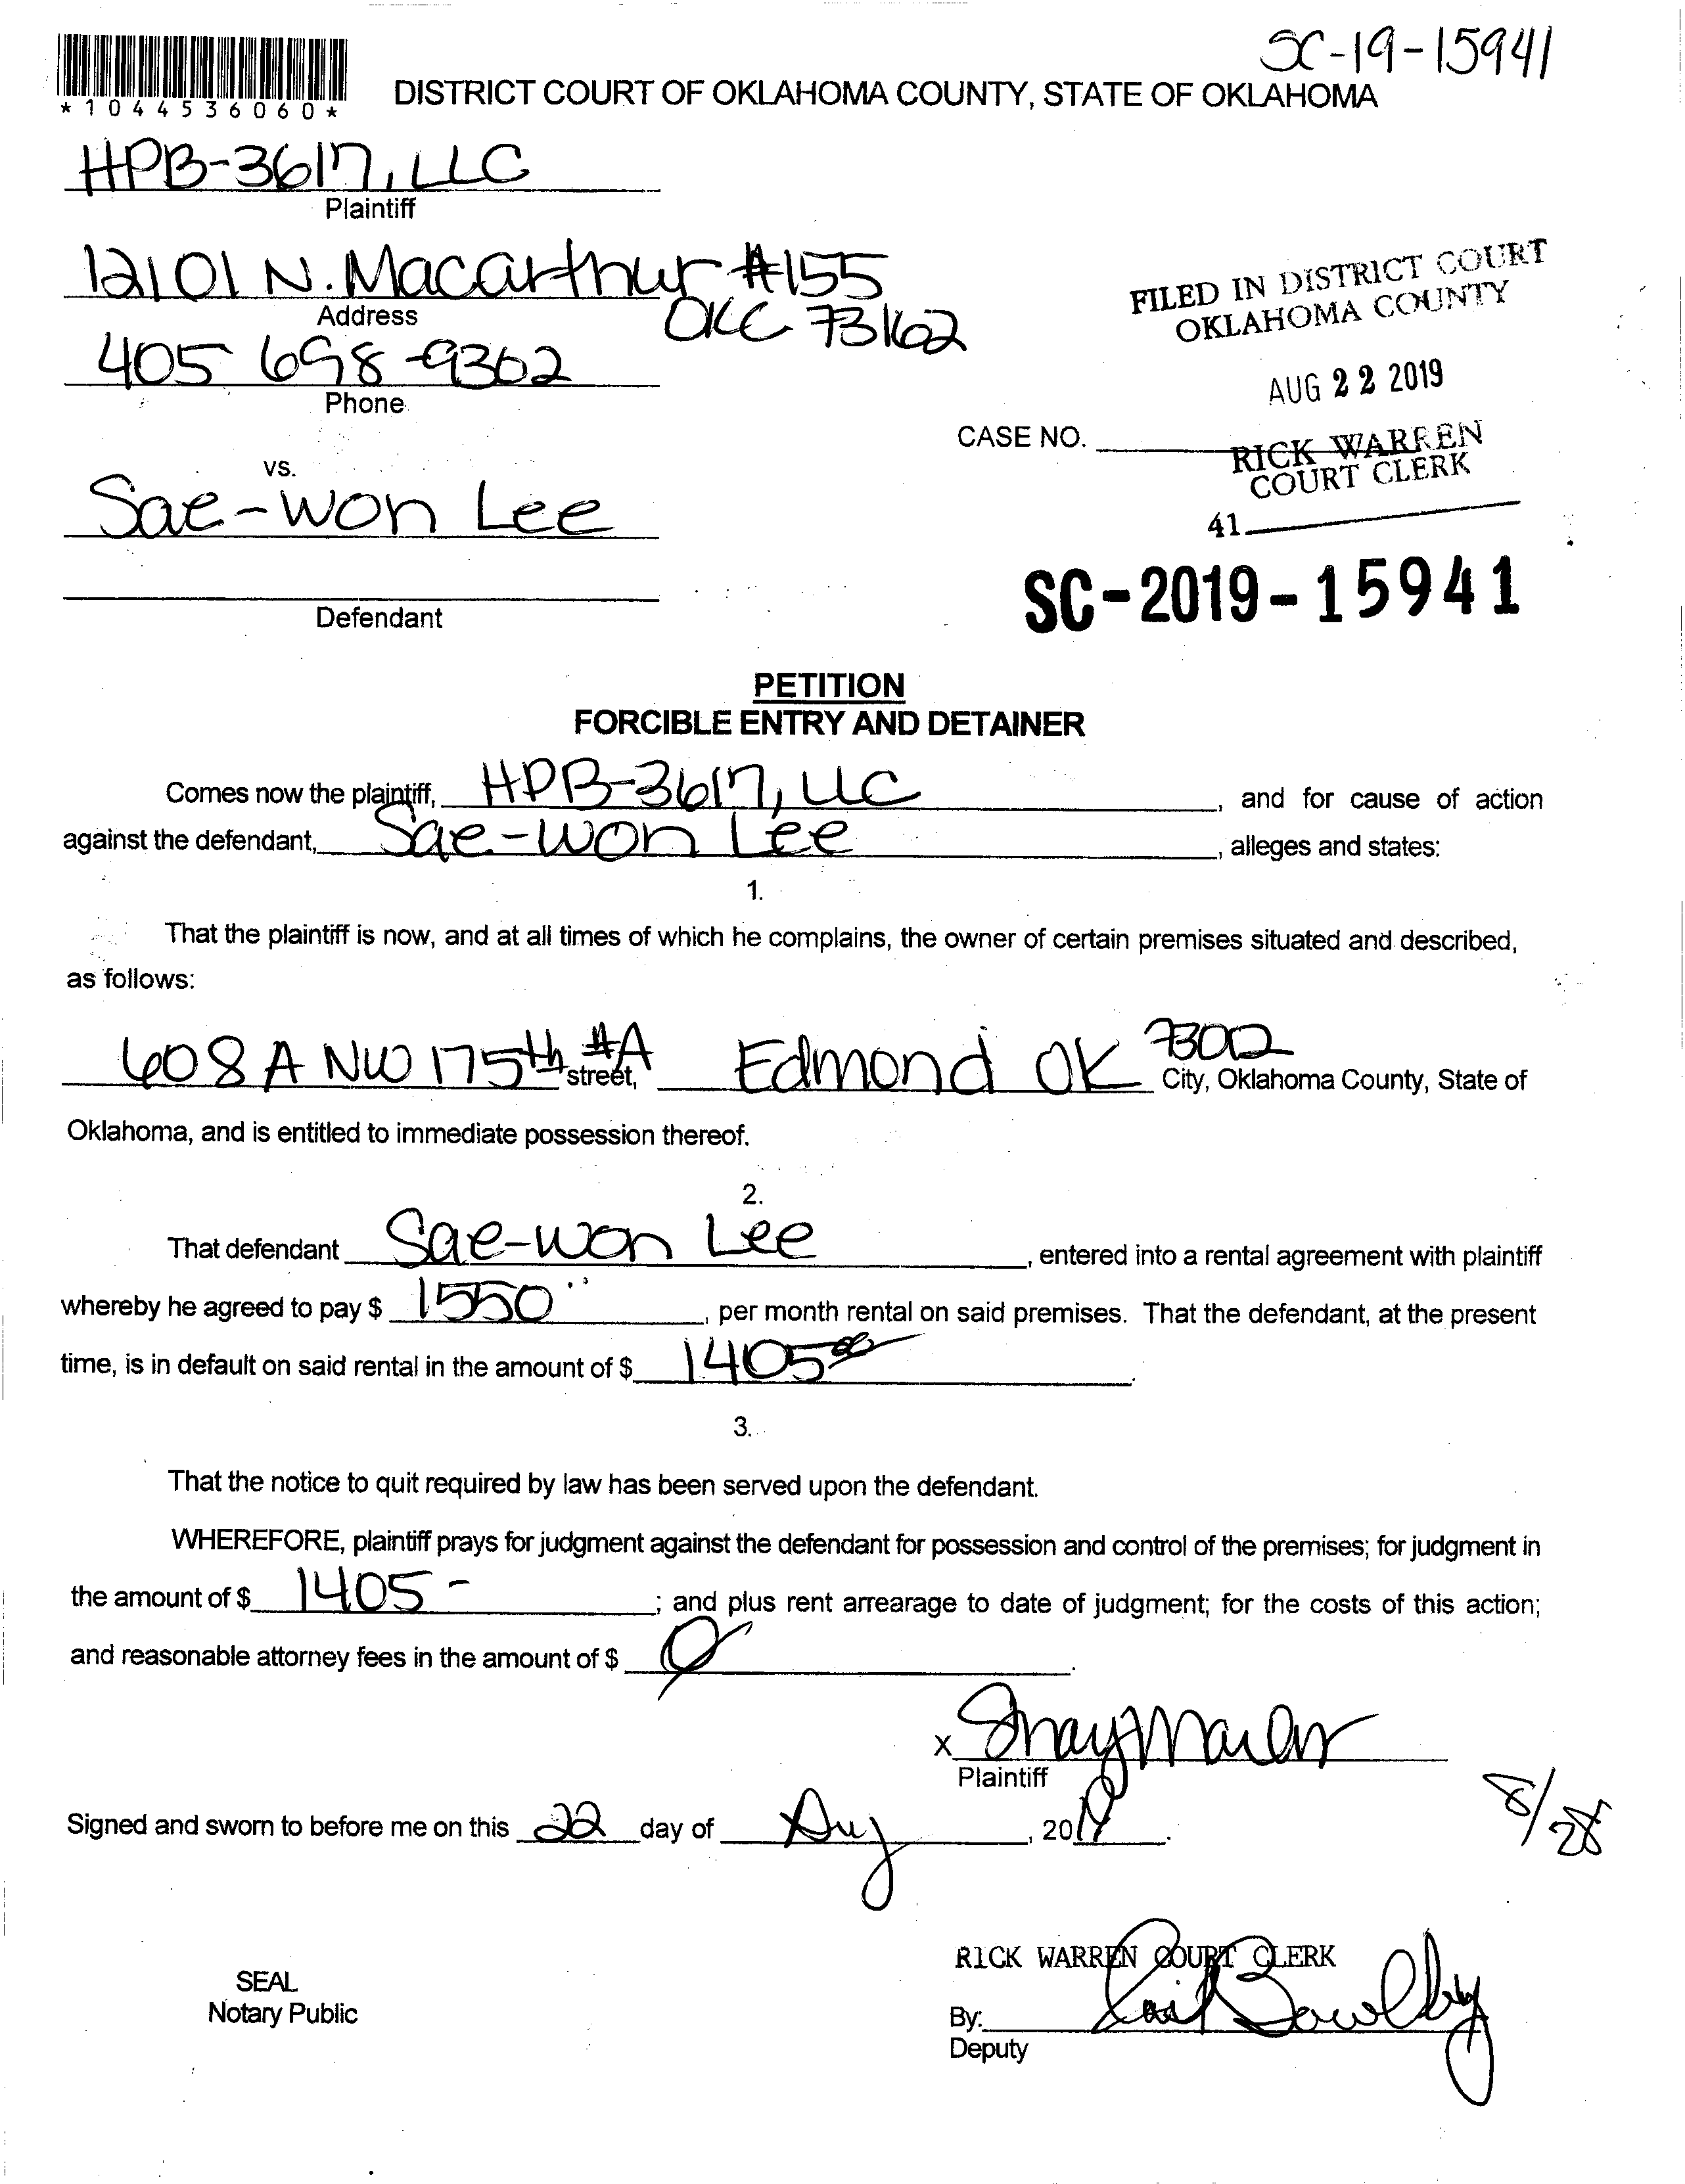 SC-19-15941
*1044536060*
DISTRICT COURT OF OKLAHOMA COUNTY, STATE OF OKLAHOMA
HPB-3617, LLC
Plaintiff
12101 N. Macarthur #155
Address
OKC 73162
405 698-9362
Phone
FILED IN DISTRICT COURT
OKLAHOMA COUNTY
AUG 22 2019
CASE NO.
RICK WARREN
COURT CLERK
41
vs.
Sae-won Lee
Defendant
SC-2019-15941
PETITION
FORCIBLE ENTRY AND DETAINER
Comes now the plaintiff, HPB-3617, LLC, and for cause of action
against the defendant, Sae-won Lee, alleges and states:
1.
That the plaintiff is now, and at all times of which he complains, the owner of certain premises situated and described,
as follows:
608 A NW 175th #A street, Edmond OK 73012 City, Oklahoma County, State of
Oklahoma, and is entitled to immediate possession thereof.
2.
That defendant Sae-won Lee, entered into a rental agreement with plaintiff
whereby he agreed to pay $ 1550, per month rental on said premises. That the defendant, at the present
time, is in default on said rental in the amount of $ 1405 00.
3.
That the notice to quit required by law has been served upon the defendant.
WHEREFORE, plaintiff prays for judgment against the defendant for possession and control of the premises; for judgment in
the amount of $ 1405 -; and plus rent arrearage to date of judgment; for the costs of this action;
and reasonable attorney fees in the amount of $ 0.
X
Plaintiff
8/28
Signed and sworn to before me on this 22 day of Aug, 2019.
RICK WARREN COURT CLERK
SEAL
Notary Public
By:
Deputy